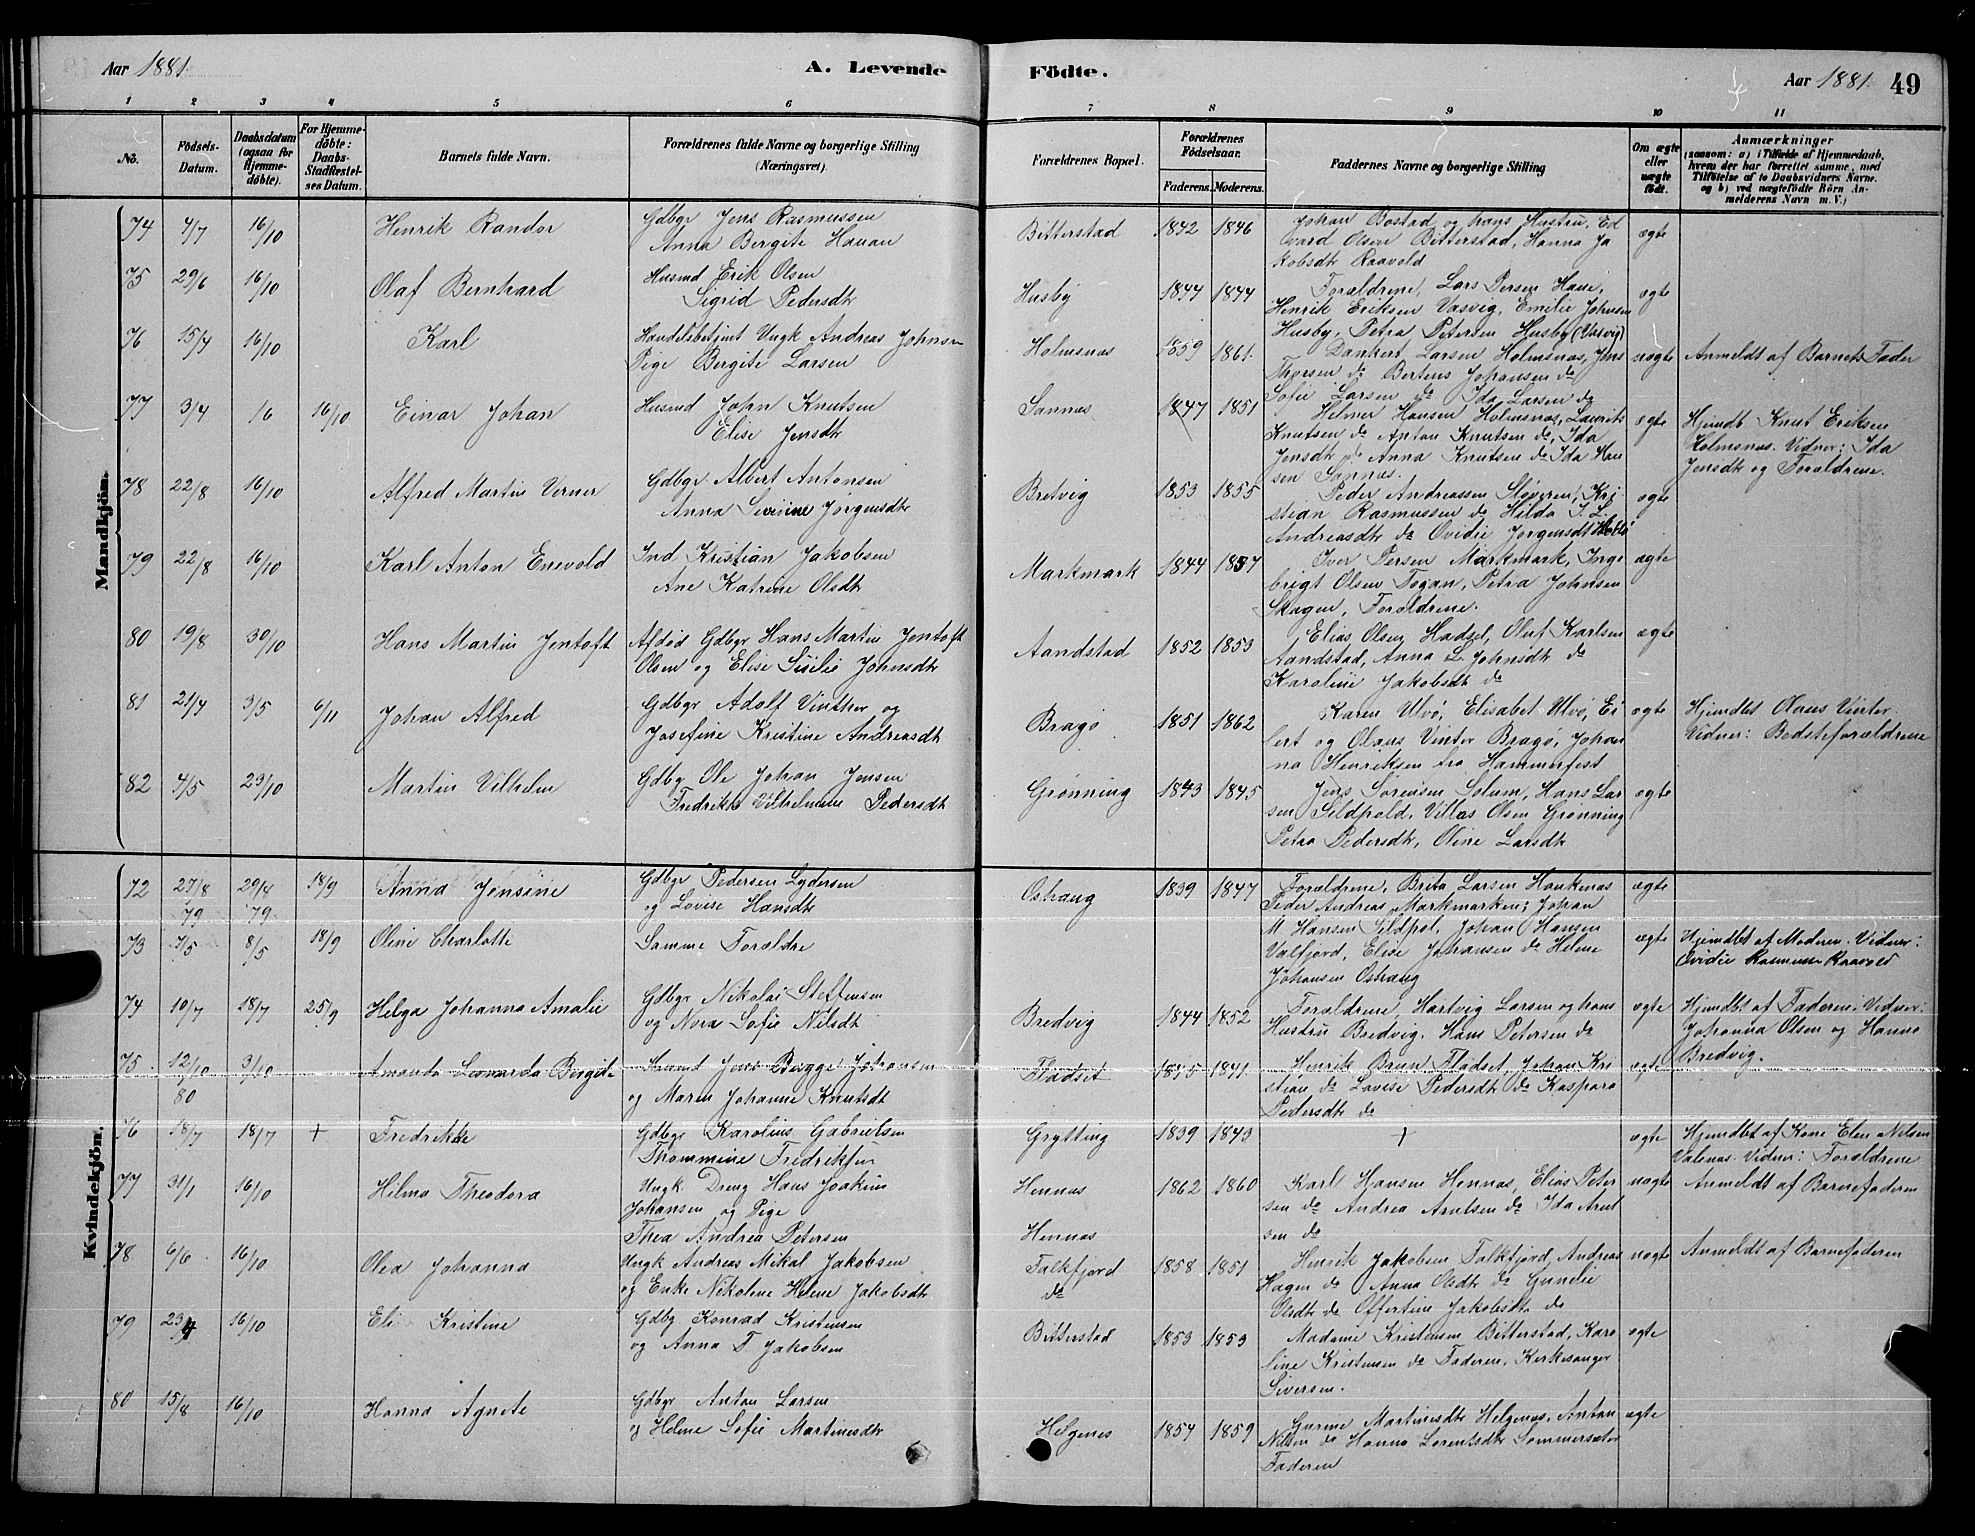 Aar 1881. A. Levende Födte. Aar 1881. 49
1 2 3 4 5 6 7 8 9 10 11
No. Födsels-Datum. Daabsdatum (ogsaa for Hjemme-döbte). For Hjemme-döbte: Daabs-Stadfæstel-ses Datum. Barnets fulde Navn. Forældrenes fulde Navne og borgerlige Stilling (Næringsvei). Forældrenes Bopæl. Forældrenes Födselsaar. Faderens. Moderens. Faddernes Navne og borgerlige Stilling Om ægte eller uægte födt. Anmærkninger (saasom: a) i Tilfælde af Hjemmedaab, hvem der har forrettet samme, med Tilföielse af to Daabsvidners Navne. og b) ved uægtefödte Börn An-melderens Navn m. V.)
Mandkjön.
74 4/7 16/10 Henrik Randor Gdbgr Jens Rasmussen Bitterstad 1842 1846 Johan Bostad og hans Hustru, Ed ægte
Anna Bergite Hanan vard Olsen Bitterstad, Hanna Ja
kobsdtr Raavold
75 29/6 16/10 Olaf Bernhard Husmd Erik Olsen Husby 1844 1844 Forældrene, Lars Persen Hane, ægte
Sigrid Pedersdtr Henrik Eriksen Vasvig, Emilie Johnsen
Husby, Petra Petersen Husby (Vasvig)
76 15/4 16/10 Karl Handelsbetjent Ungk Andreas Johnsen Holmsnæs 1859 1861. Dankert Larsen Holmsnæs, Jens uægte Anmeldt af Barnets Fader
Pige Bergite Larsen Thorsen do Bertens Johansen do
Sofie Larsen do Ida Larsen do
77 3/4 /6 16/10 Einar Johan Husmd John Knutsen Sannæs 1847 1851 Helmer Hansen Holmsnæs, Laurits ægte Hjemdbt Knut Eriksen
Elise Jensdtr Knutsen do Anton Knutsen do, Ida Holmsnæs. Vidner: Ida
Jensdtr do Anna Knutsen do Ida Han Jensdtr og Forældrene.
sen Sannæs.
78 22/8 16/10 Alfred Martin Verner Gdbgr Albert Antonsen Bretvig 1853 1855 Peder Andreassen Sløveren, Kri ægte
Anna Severine Jørgensdtr stian Rasmussen do Hilda J. L.
Andreasdtr do Ovidie Jørgensdtr
79 22/8 16/10 Karl Anton Enevold Ind Kristian Jakobsen Markmark 1844 1857 Iver Persen Markmark, Inge ægte
Ane Katrine Olsdtr brigt Olsen Togan, Petra Johnsen
Skagen, Forældrene.
80 19/8 30/10 Hans Martin Jentoft Afdød Gdbgr Hans Martin Jentoft Aandstad 1852 1853 Elias Olsen Hadsel, Oluf Karlsen ægte
Olsen og Elise Sisilie Johnsdtr Aandstad, Anna L. Johnsdtr do
Karoline Jakobsdtr do
81 21/4 3/5 6/11 Johan Alfred Gdbgr Adolf Vinther og Bragø 1851 1862 Karen Ulvø, Elisabet Ulvø, Ei ægte Hjemdbt Olaus Vinter
Josefine Kristine Andreasdtr lert og Olaus Vinter Bragø, Johan Vidner: Bedsteforældrene
na Henriksen fra Hammerfest
82 4/5 23/10 Martin Vilhelm Gdbgr Ole Johan Jensen Grønning 1843 1845 Jens Sørensen Solum, Hans Lar ægte
Fredrikke Vilhelmine Pedersdtr sen Sildpold, Villas Olsen Grønning
Petra Pedersdtr, Oline Larsdtr
Kvindekjön.
72 27/8 79 29/4 79 18/9 Anna Jensine Gdbgr Pedersen Lydersen Oshaug 1839 1847 Forældrene, Brita Larsen Haukenæs ægte
og Lovise Hansdtr Peder Andreas Markmarken, Johan
M Hansen Sildpol, Johan Hansen
73 7/5 8/5 18/9 Oline Charlotte Samme Forældre Valfjord, Elise Johansen do Helene ægte Hjemdbt af Moderen. Vidner:
Johansen Oshaug Ovidie Rasmussen Raavold
74 10/7 18/7 25/9 Helga Johanna Amalie Gdbgr Nikolai Steffensen Bredvig 1844 1852 Forældrene, Hartvig Larsen og hans ægte Hjemdbt af Faderen. Vidner:
og Nora Sofie Nilsdtr Hustru Bredvig. Hans Petersen do Johanna Olsen og Hanna
Bredvig.
75 12/10 80 3/10 Amanda Leonarda Bergite Husmd Jens Brygge Johansen Fladset 1845 1841 Henrik Bruun Fladset, Johan Kri ægte
og Maren Johanne Knutsdt stian do Lovise Pedersdtr do Kaspara
Pedersdtr do
76 18/7 18/7 + Fredrikke Gdbgr Karolius Gabrielsen Grytting 1839 1843 + ægte Hjemdbt af Kone Elen Nilsen
Thommine Fredriksen Valenæs. Vidner: Forældrene
77 31/1 16/10 Hilma Theodora Ungk. Dreng Hans Joakim Hennæs 1862 1860 Karl Hansen Hennæs, Elias Peter uægte Anmeldt af Barnefaderen
Johansen og Pige sen do Andrea Arntsen do Ida Arnt
Thea Andrea Petersen Hennæs sen do
78 6/6 16/10 Olea Johanna Ungk Andreas Mikal Jakobsen Falkfjord 1858 1851 Henrik Jakobsen Falkfjord, Andreas uægte Anmeldt af Barnefaderen
og Enke Nikoline Helene Jakobsdtr do Hagen do Anna Olsdtr do Gunelie
Olsdtr do Offertine Jakobsdtr do
79 23/4 16/10 Eli Kristine Gdbg Konrad Kristensen Bitterstad 1853 1853 Madame Kristensen Bitterstad, Karo ægte
og Anna T Jakobsen line Kristensen do Faderen, Kirkesanger
Siversen.
80 15/8 16/10 Hanna Agnete Gdbgr Anton Larsen Helgenes 1854 1859 Martinisdtr Helgenæs. Anton ægte
og Helene Sofie Martinisdtr Nilsen do Hanna Lorentsdtr Sommersæter
Faderen